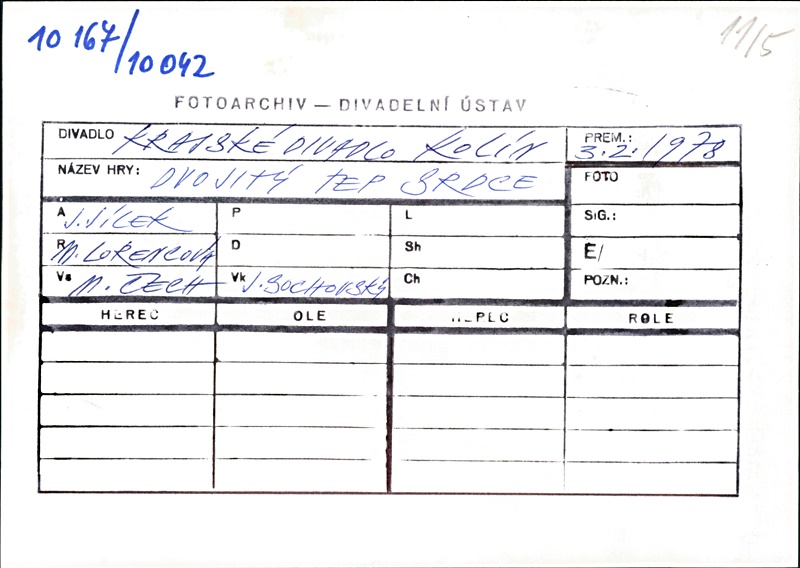 10 167/10 042
11/5
FOTOARCHIV — DIVADELNÍ ÚSTAV
DIVADLO KRAJSKÉ DIVADLO KOLÍN
PREM.: 3.2.1978
NÁZEV HRY: DVOJITÝ TEP SRDCE
FOTO
A J. JÍLEK P L SIG.:
R M. LORENCOVÁ D Sh E/
Vs M. ČECH Vk J. SOCHOVSKÝ Ch POZN.:
HEREC OLE HEPEC ROLE